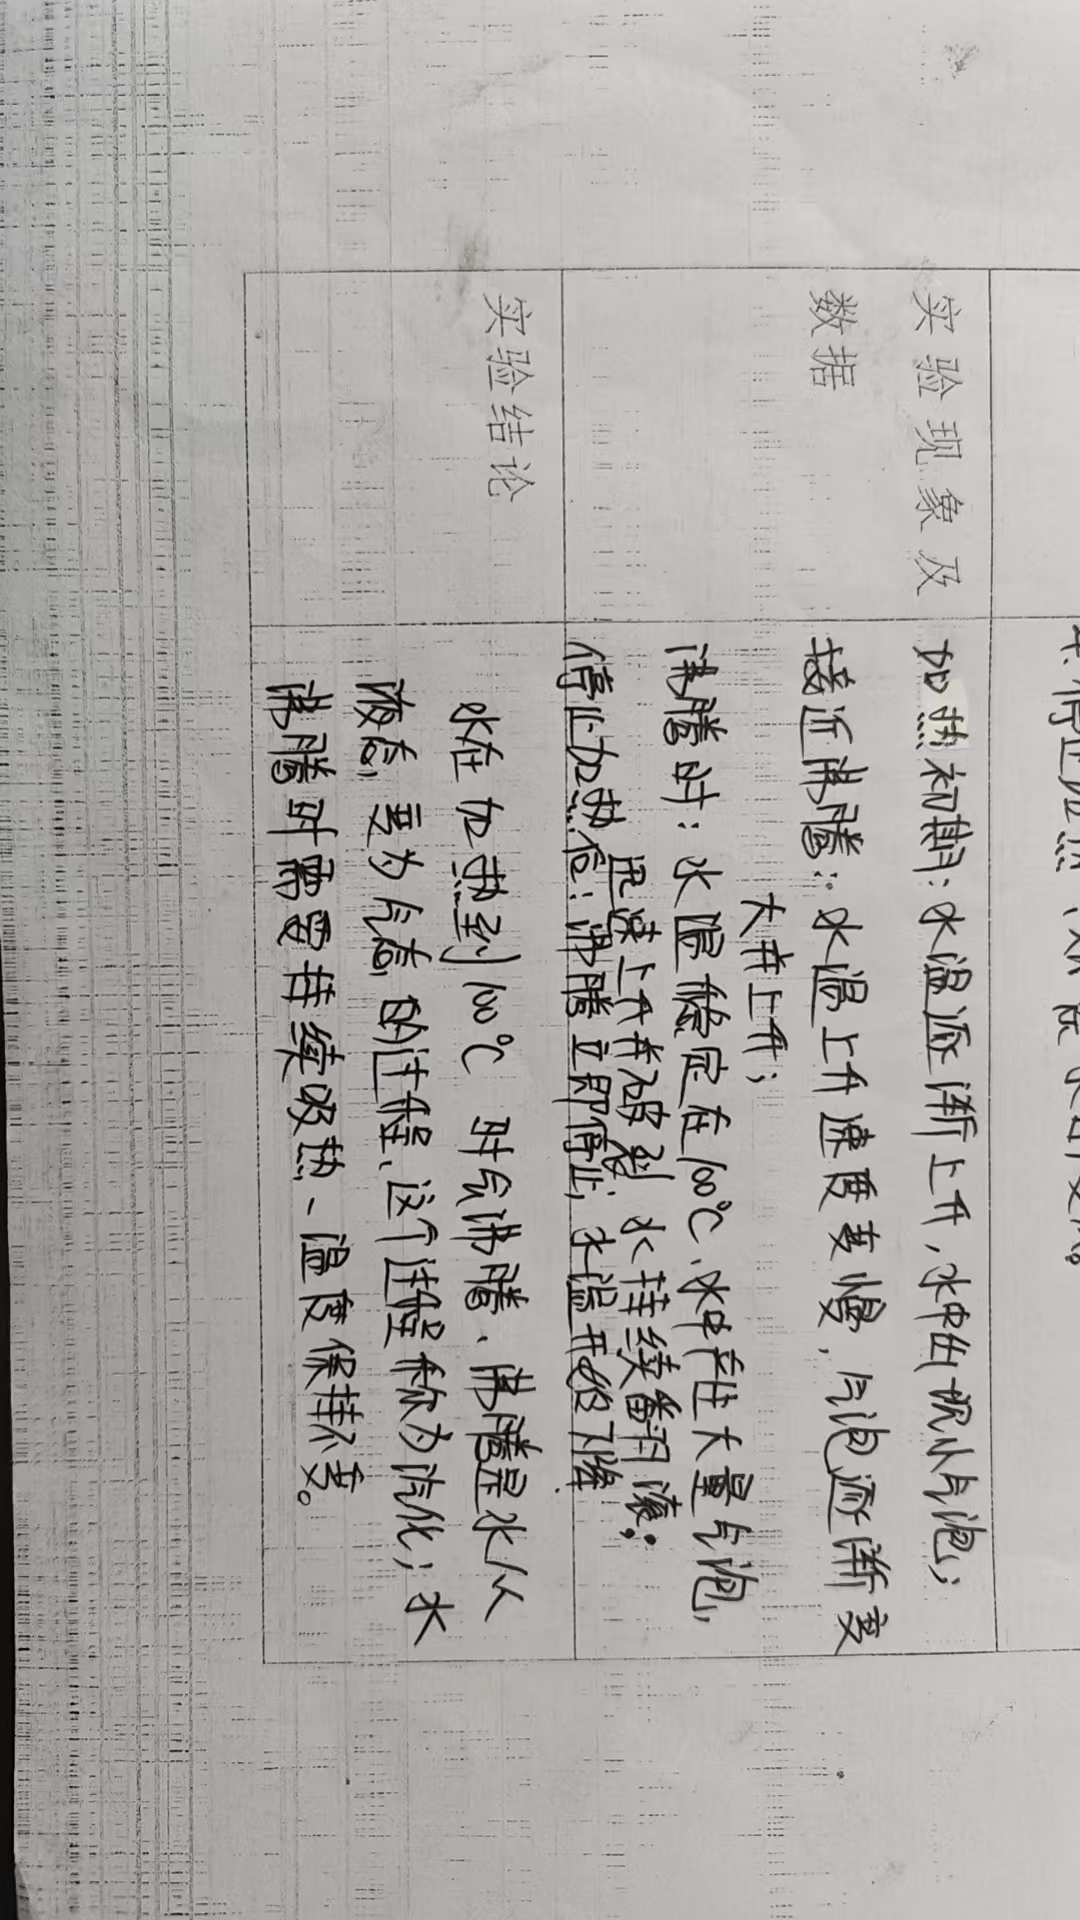 实验现象及
数据
加热初期：水温逐渐上升，水中出现小气泡；
接近沸腾：水温上升速度变慢，气泡逐渐变
大并上升；
沸腾时：水温稳定在100℃、水中产生大量气泡，
迅速上升并破裂 水持续翻滚；
停止加热后：沸腾立即停止，水温开始下降
实验结论
水在加热到100℃ 时会沸腾、沸腾是水从
液态，变为气态，的过程、这个过程称为汽化；水
沸腾时需要持续吸热、温度保持不变。